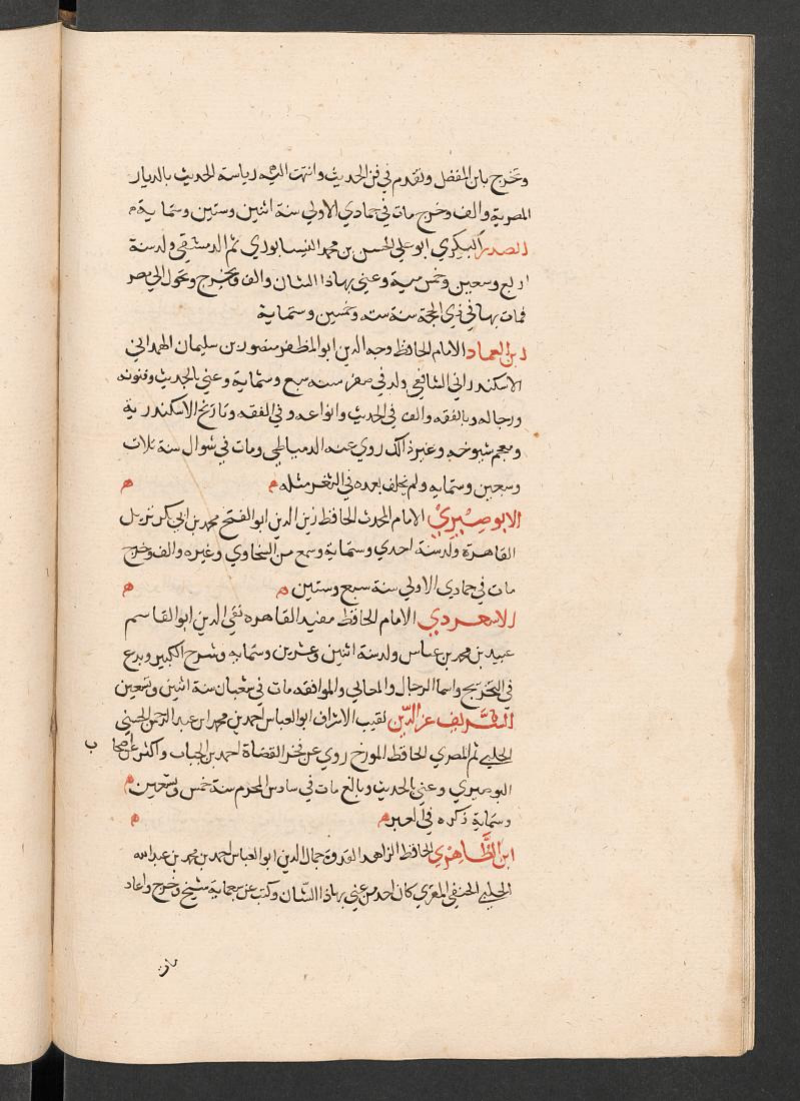 وتخرج بابن المفضل وتقدم في فن الحديث وانتهت اليه رياسة الحديث بالديار
المصرية والف وخرج مات في جمادي الاولي سنة اثنين وستين وستماية
الصدر البكري ابو علي الحسن بن محمد النيسابوري ثم الدمشقي ولد سنة
اربع وسبعين وخمس مية وعني بهاذا الشان والف وتخرج وتحول الي مصر
فمات بها في ذي الحجة سنة ستة وخمسين وستماية
ابن العماد الامام الحافظ وجيه الدين ابو المظفر منصور بن سليمان الهمداني
الاسكندراني الشافعي ولد في صفر سنه سبع وستماية وعني بالحديث وفنونه
ورجاله وبالفقه والف في الحديث وانواعه وفي الفقه وتاريخ الاسكندرية
ومعجم شيوخه وغير ذالك روي عنه الدمياطي ومات في شوال سنة ثلاث
وسبعين وستمايه ولم يخلف بعده في الثغر مثله م ه
الابوصيري الامام المحدث الحافظ زين الدين ابو الفتح محمد بن ابي بكر نزيل
القاهرة ولد سنة احدي وستماية وسمع من السخاوي وغيره والف وخرج
مات في جمادي الاولي سنة سبع وستين ه ه
الاسعردي الامام الحافظ مفيد القاهره تقي الدين ابو القاسم
عبيد بن محمد بن عباس ولد سنة اثنين وعشرين وستمايه وشرح الكبير وبرع
في التخريج واسما الرجال والعالي والموافقه مات في شعبان سنة اثنين وتسعين
الشريف عز الدين نقيب الاشراف ابو العباس احمد بن محمد ابن عبد الرحمن الحسني
الحلبي ثم المصري الحافظ المورخ روي عن فخر القضاة احمد بن الجباب واكثر عن اصحا ب
البوصيري وعني بالحديث وبالغ مات في سادس المحرم سنة خمس وتسعين م
وستماية ذكره في العبر م م
ابن الظاهري الحافظ الزاهد القدوة جمال الدين ابو العباس احمد بن محمد بن عبد الله
الحلبي الحنفي المقري كان احد من عني بهاذا الشان وكتب عن سبعماية شيخ وخرج واعاد
مات